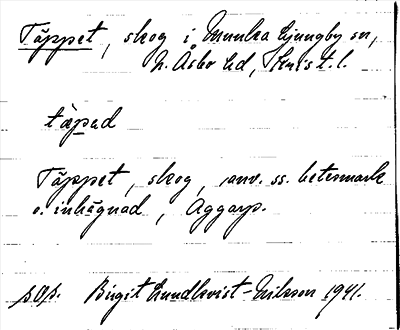 Täppet, skog i Munka Ljungby sn,
N. Åsbo hd, Krist. l.
täpəd
Täppet, skog, anv. ss. betesmark
o. inhägnad, Aggarp.
s.O.s. Birgit Lundkvist-Nilsson 1941.